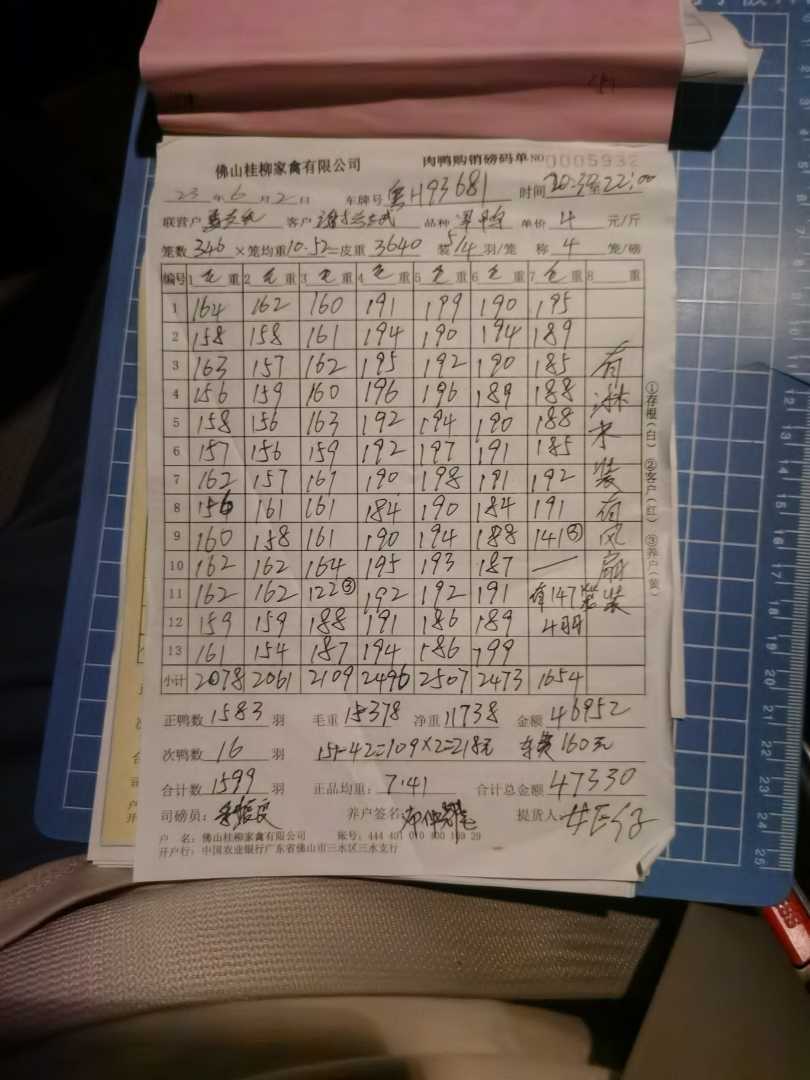 佛山桂柳家禽有限公司 肉鸭购销磅码单 NO 0005932
23年6月2日 车牌号 粤H93681 时间 20:39至22:00
联营户 客户 品种 单价 4 元/斤
笼数 346 ×笼均重 10.52=皮重 3640 装 5/4 羽/笼 称 4 笼/磅
编号 1 毛重 2 毛重 3 毛重 4 毛重 5 毛重 6 毛重 7 毛重 8 重
1 164 162 160 191 199 190 195
2 158 158 161 194 190 194 189
3 163 157 162 195 192 190 185
4 156 159 160 196 196 189 188
5 158 156 163 192 194 190 188
6 157 156 159 192 197 191 185
7 162 157 161 190 198 191 192
8 156 161 161 184 190 184 191
9 160 158 161 190 194 188 141③
10 162 162 164 195 193 187 —
11 162 162 122③ 192 192 191 有147笼
12 159 159 188 191 186 189 4羽
13 161 154 187 194 186 199
小计 2078 2061 2109 2496 2507 2473 1654
有淋水装有风扇装
①存根(白) ②客户(红) ③养户(黄)
正鸭数 1583 羽 毛重 15378 净重 11738 金额 46952
次鸭数 16 羽 151-42=109×2=218元 车费160元
合计数 1599 羽 正品均重: 7.41 合计总金额 47330
司磅员: 养户签名: 提货人
户 名: 佛山桂柳家禽有限公司 账号: 444 401 010 400 109 29
开户行: 中国农业银行广东省佛山市三水区三水支行